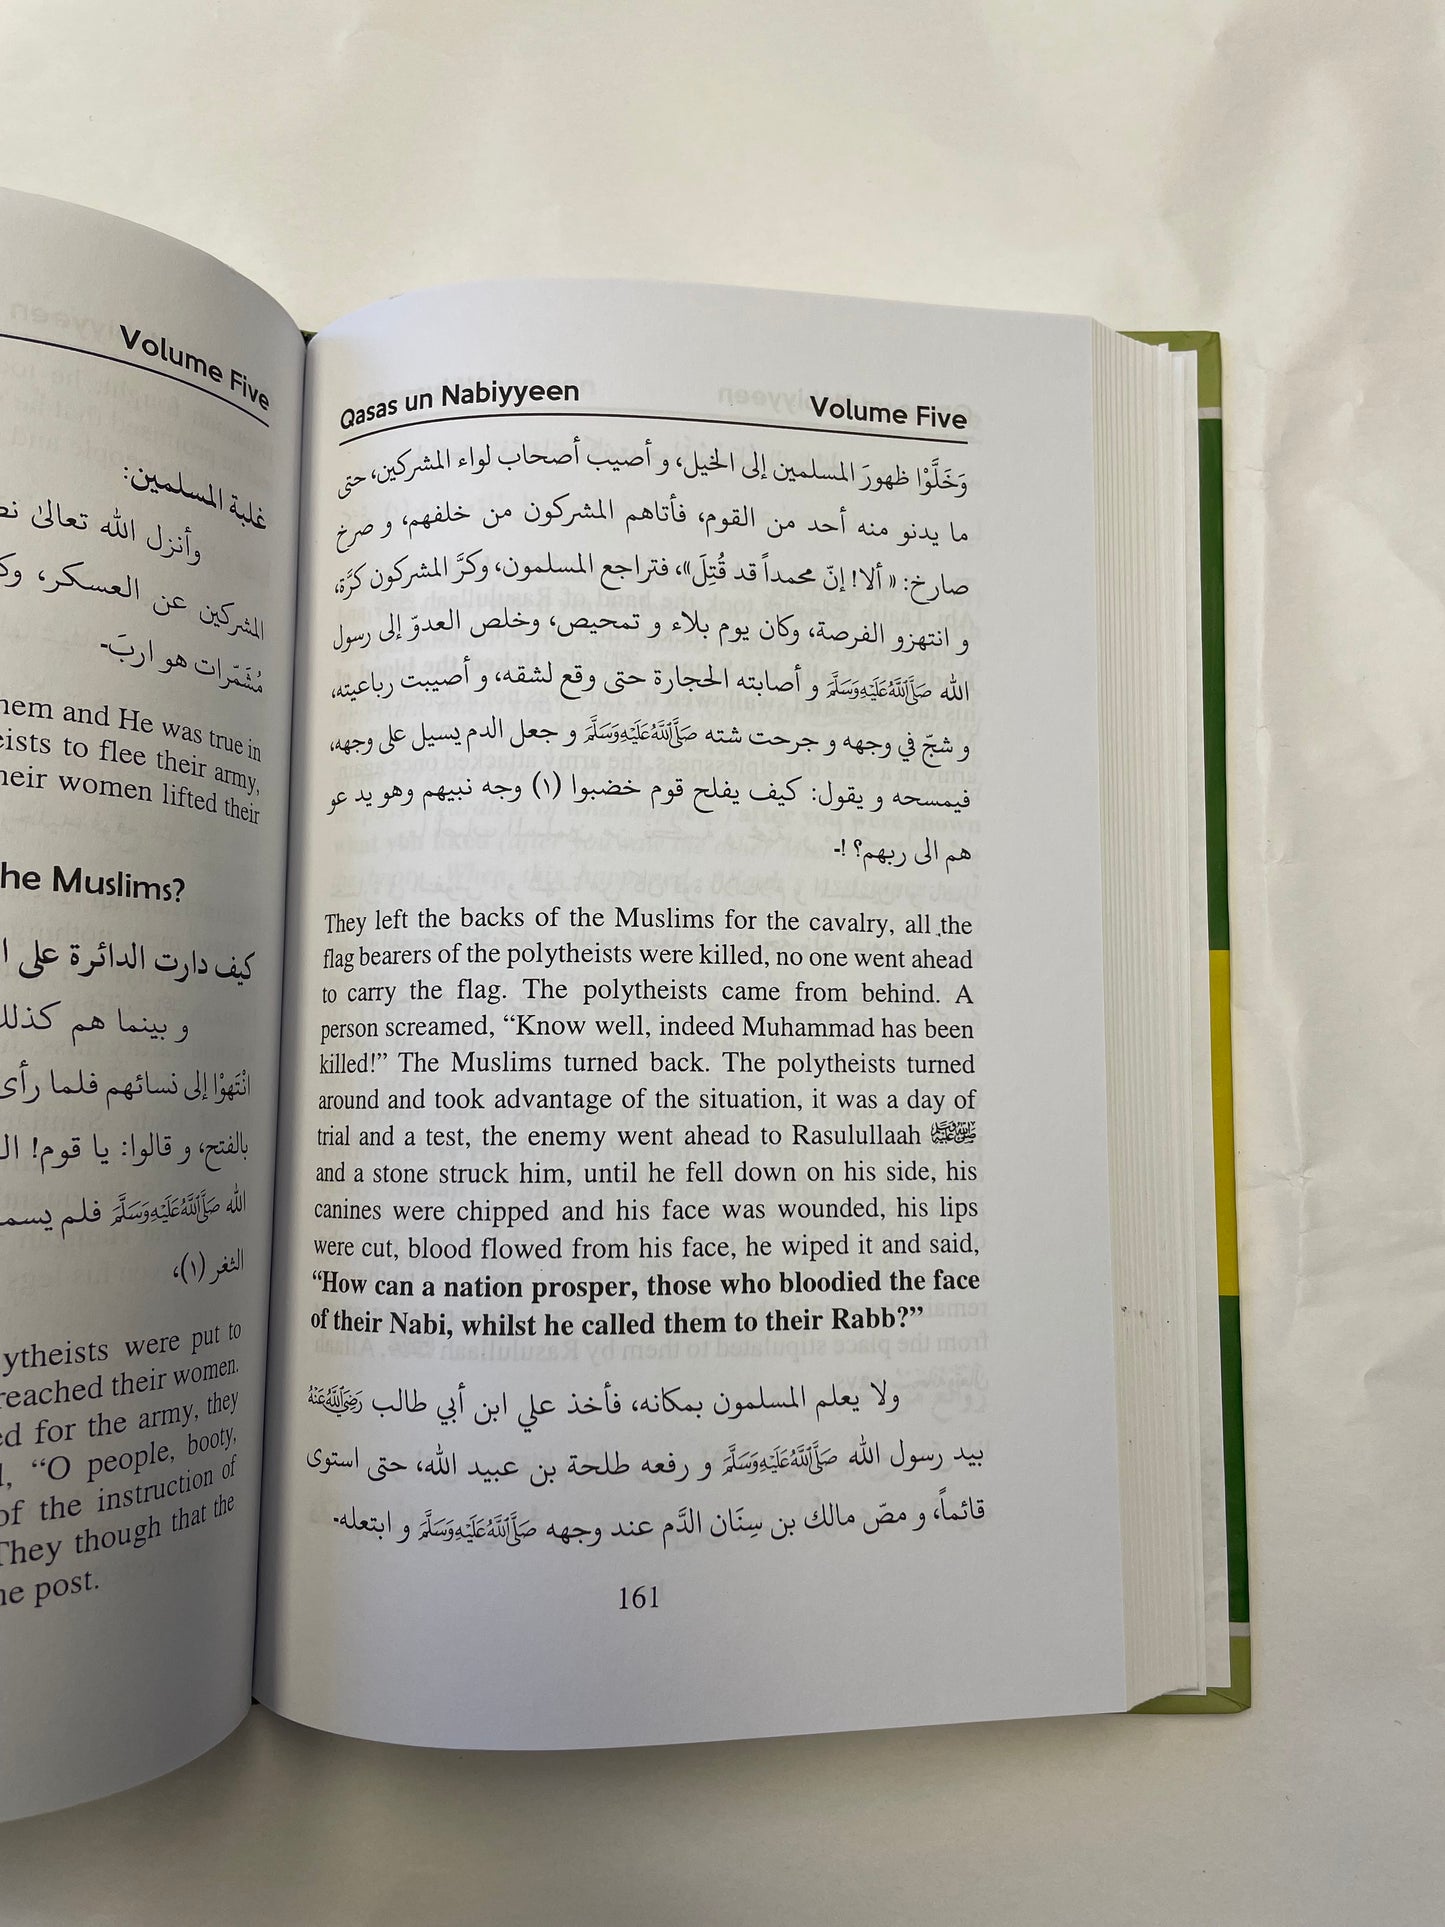 Volume Five
غلبة المسلمين:
وأنزل الله تعالىٰ
المشركين عن العسكر،
مُشَمّرات هو اربَ-
hem and He was true in
eists to flee their army,
heir women lifted their
he Muslims?
كيف دارت الدائرة على
و بينما هم كذلك
انْتَهوْا إلى نسائهم فلما رأى
بالفتح، و قالوا: يا قوم!
الله صَلَّىاللَّهُعَلَيْهِوَسَلَّمَ فلم
الثغر (١)،
ytheists were put to
reached their women.
ed for the army, they
“O people, booty,
of the instruction of
They though that the
he post.
Qasas un Nabiyyeen Volume Five
وَخَلَّوْا ظهورَ المسلمين إلى الخيل، و أصيب أصحاب لواء المشركين، حتى
ما يدنو منه أحد من القوم، فأتاهم المشركون من خلفهم، و صرخ
صارخ: « ألا! إنّ محمداً قد قُتِلَ»، فتراجع المسلمون، وكرَّ المشركون كرَّة،
و انتهزو الفرصة، وكان يوم بلاء و تمحيص، وخلص العدوّ إلى رسول
الله صَلَّىاللَّهُعَلَيْهِوَسَلَّمَ و أصابته الحجارة حتى وقع لشقه، و أصيبت رباعيته،
و شجّ في وجهه و جرحت شته صَلَّىاللَّهُعَلَيْهِوَسَلَّمَ و جعل الدم يسيل على وجهه،
فيمسحه و يقول: كيف يفلح قوم خضبوا (١) وجه نبيهم وهو يد عو
هم الى ربهم؟ !-
They left the backs of the Muslims for the cavalry, all the
flag bearers of the polytheists were killed, no one went ahead
to carry the flag. The polytheists came from behind. A
person screamed, “Know well, indeed Muhammad has been
killed!” The Muslims turned back. The polytheists turned
around and took advantage of the situation, it was a day of
trial and a test, the enemy went ahead to Rasulullaah ﷺ
and a stone struck him, until he fell down on his side, his
canines were chipped and his face was wounded, his lips
were cut, blood flowed from his face, he wiped it and said,
“How can a nation prosper, those who bloodied the face
of their Nabi, whilst he called them to their Rabb?”
ولا يعلم المسلمون بمكانه، فأخذ علي ابن أبي طالب رَضِيَاللَّهُعَنْهُ
بيد رسول الله صَلَّىاللَّهُعَلَيْهِوَسَلَّمَ و رفعه طلحة بن عبيد الله، حتى استوى
قائماً، و مصّ مالك بن سِنَان الدَّم عند وجهه صَلَّىاللَّهُعَلَيْهِوَسَلَّمَ و ابتعله-
161